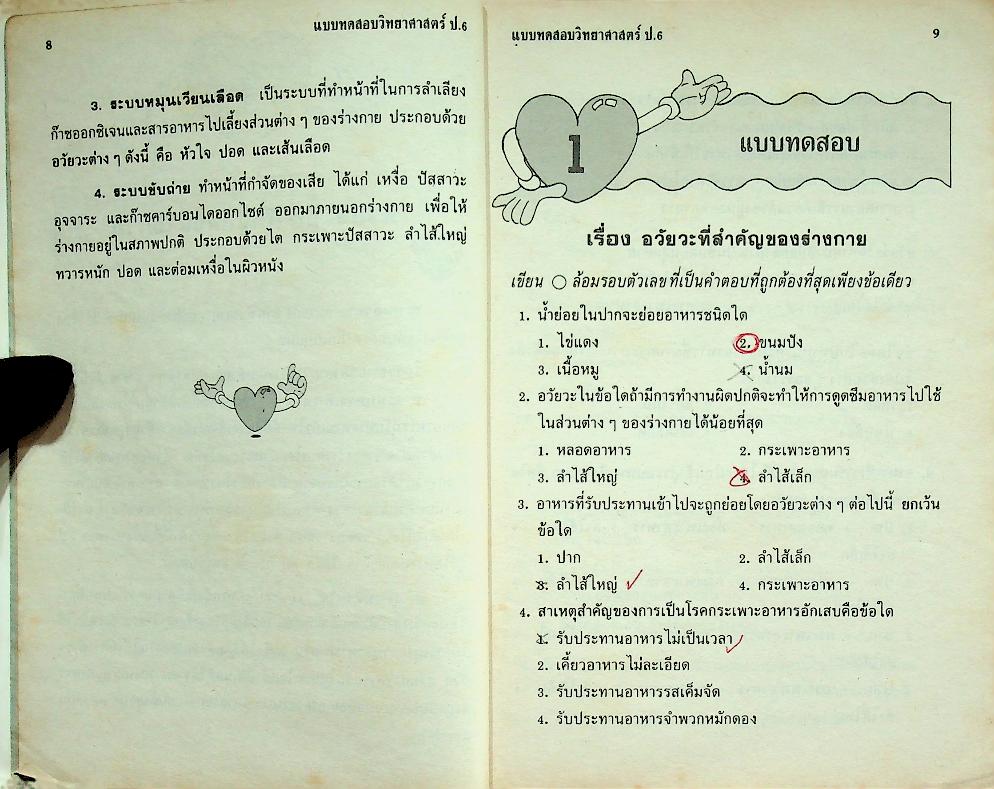 8
แบบทดสอบวิทยาศาสตร์ ป.6
3. ระบบหมุนเวียนเลือด เป็นระบบที่ทำหน้าที่ในการลำเลียง
ก๊าซออกซิเจนและสารอาหารไปเลี้ยงส่วนต่าง ๆ ของร่างกาย ประกอบด้วย
อวัยวะต่าง ๆ ดังนี้ คือ หัวใจ ปอด และเส้นเลือด
4. ระบบขับถ่าย ทำหน้าที่กำจัดของเสีย ได้แก่ เหงื่อ ปัสสาวะ
อุจจาระ และก๊าซคาร์บอนไดออกไซด์ ออกมาภายนอกร่างกาย เพื่อให้
ร่างกายอยู่ในสภาพปกติ ประกอบด้วยไต กระเพาะปัสสาวะ ลำไส้ใหญ่
ทวารหนัก ปอด และต่อมเหงื่อในผิวหนัง
แบบทดสอบวิทยาศาสตร์ ป.6
9
1
แบบทดสอบ
เรื่อง อวัยวะที่สำคัญของร่างกาย
เขียน ○ ล้อมรอบตัวเลขที่เป็นคำตอบที่ถูกต้องที่สุดเพียงข้อเดียว
1. น้ำย่อยในปากจะย่อยอาหารชนิดใด
1. ไข่แดง 2. ขนมปัง
3. เนื้อหมู 4. น้ำนม
2. อวัยวะในข้อใดถ้ามีการทำงานผิดปกติจะทำให้การดูดซึมอาหารไปใช้
ในส่วนต่าง ๆ ของร่างกายได้น้อยที่สุด
1. หลอดอาหาร 2. กระเพาะอาหาร
3. ลำไส้ใหญ่ 4. ลำไส้เล็ก
3. อาหารที่รับประทานเข้าไปจะถูกย่อยโดยอวัยวะต่าง ๆ ต่อไปนี้ ยกเว้น
ข้อใด
1. ปาก 2. ลำไส้เล็ก
3. ลำไส้ใหญ่ 4. กระเพาะอาหาร
4. สาเหตุสำคัญของการเป็นโรคกระเพาะอาหารอักเสบคือข้อใด
1. รับประทานอาหารไม่เป็นเวลา
2. เคี้ยวอาหารไม่ละเอียด
3. รับประทานอาหารรสเค็มจัด
4. รับประทานอาหารจำพวกหมักดอง